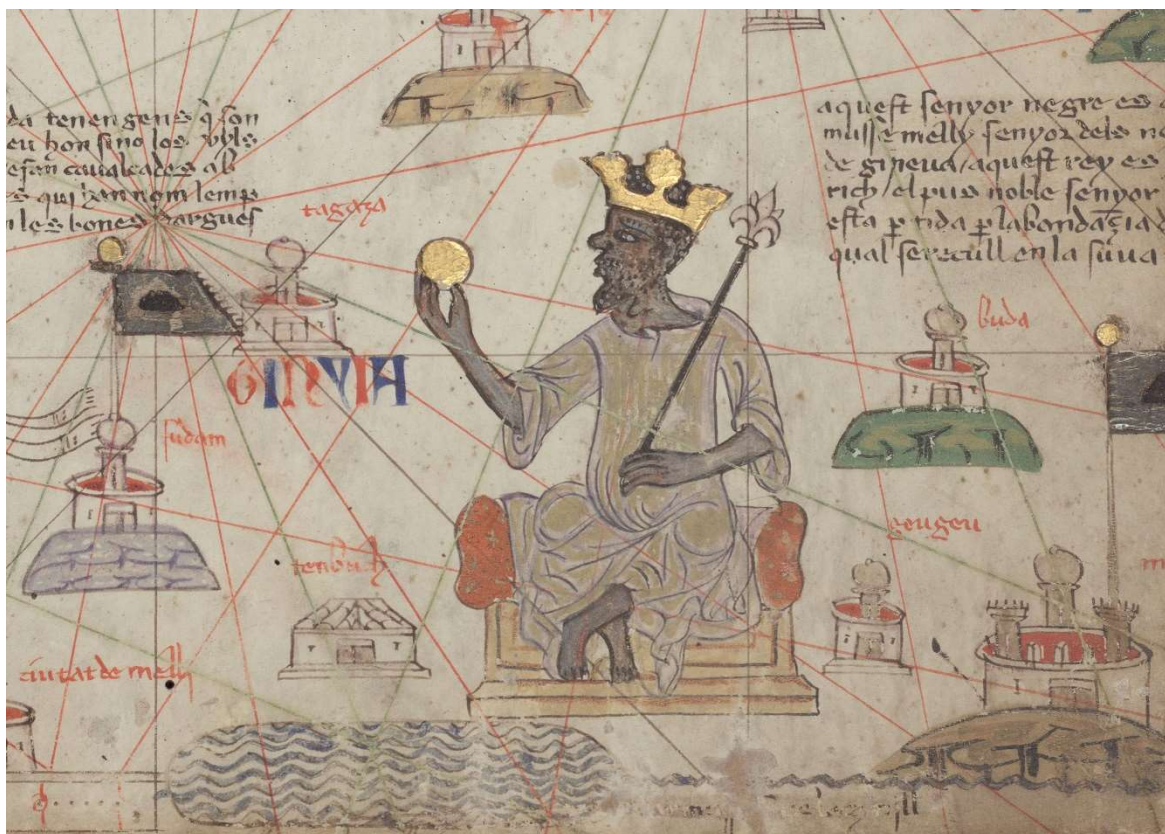 da tenen gens q̃ son
eu hom sino los vyls
e fan caualcades ab
s qui han nom lemp
n les bones dargues
aquest senyor negre es
musse melly senyor dels ne
de gineua / aquest rey es
rich / el pus noble senyor
esta ptida p labondaçia d
qual se recull en la suua
tagaza
GINYIA
buda
sudam
geugeu
tenbuch
ciutat de melly